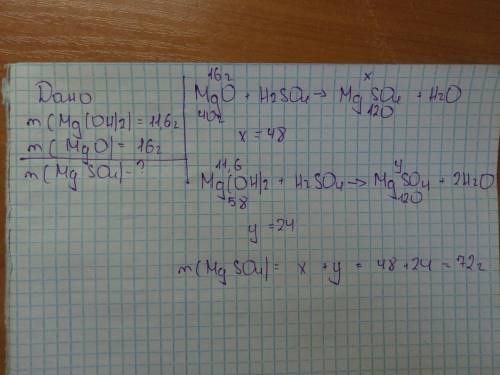 Дано
m(Mg(OH)2)=11,6г
m(MgO)=16г
m(MgSO4)-?
16г x
MgO + H2SO4 → MgSO4 + H2O
40г 120
x = 48
11,6 y
Mg(OH)2 + H2SO4 → MgSO4 + 2H2O
58 120
y = 24
m(MgSO4) = x + y = 48 + 24 = 72г